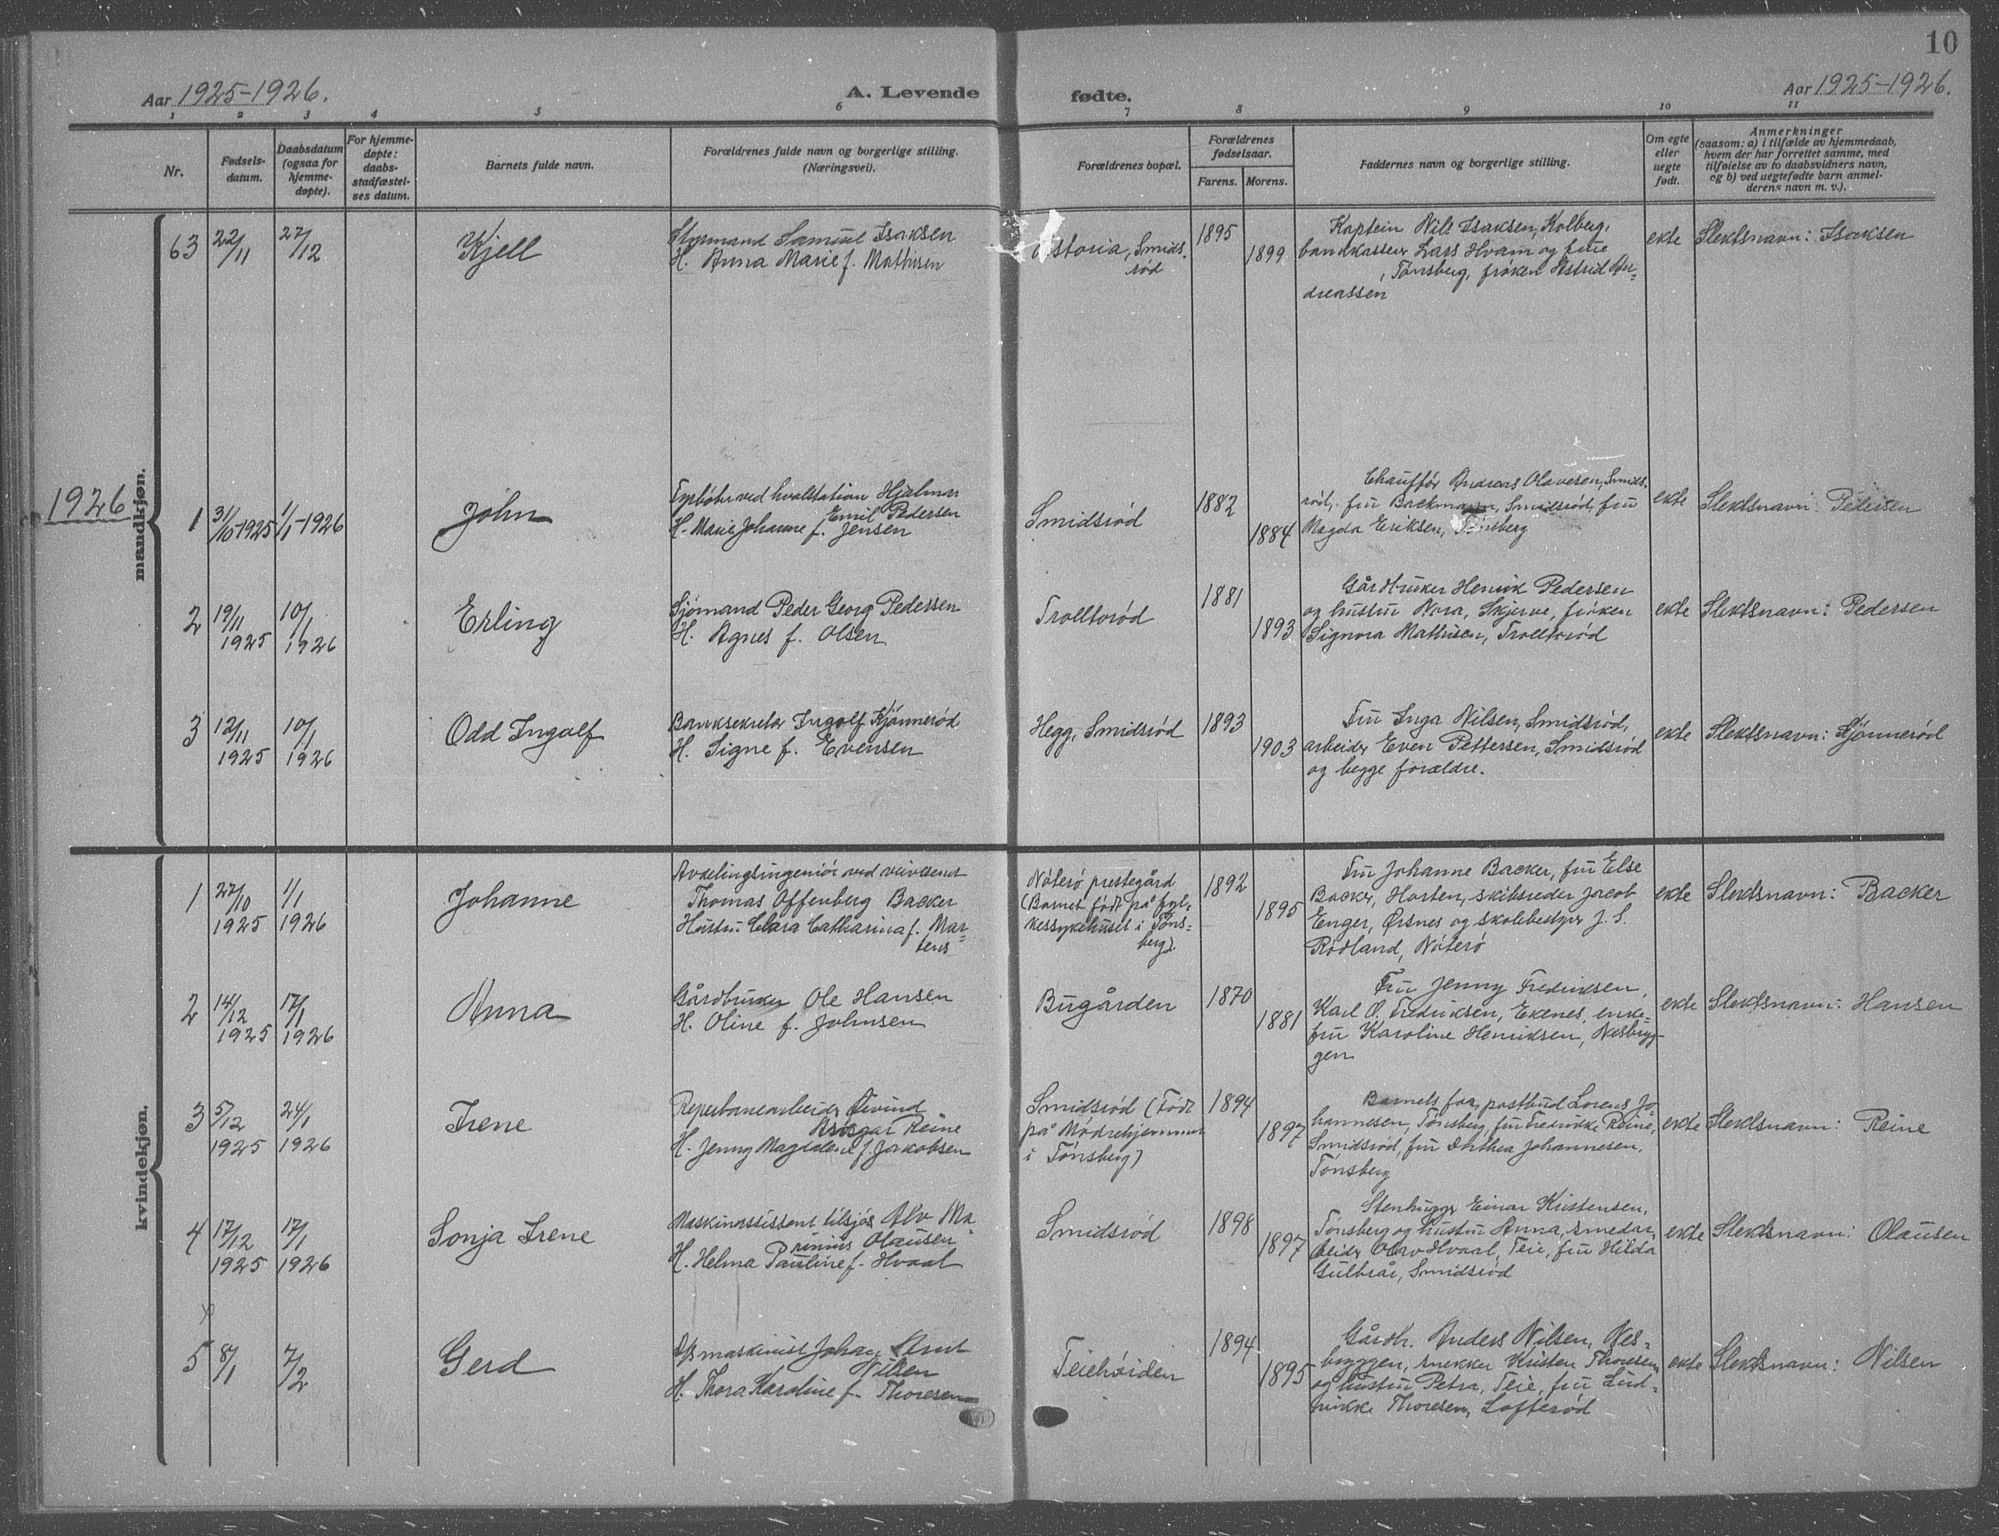 10
Aar 1925-1926.
A. Levende fødte.
Aar 1925-1926.
1 2 3 4 5 6 7 8 9 10 11
Nr.
Fødsels-
datum.
Daabsdatum
(ogsaa for
hjemme-
døpte).
For hjemme-
døpte:
daabs-
stadfæstel-
ses datum.
Barnets fulde navn.
Forældrenes fulde navn og borgerlige stilling.
(Næringsvei).
Forældrenes bopæl.
Forældrenes
fødselsaar.
Farens. Morens.
Faddernes navn og borgerlige stilling.
Om egte
eller
uegte
født.
Anmerkninger
(saasom: a) i tilfælde av hjemmedaab,
hvem der har forrettet samme, med
tilføielse av to daabsvidners navn,
og b) ved uegtefødte barn anmel-
derens navn m. v.).
mandkjøn.
63 22/11 27/12
Kjell
Styrmand Samuel Isaksen
H. Anna Marie f. Mathisen
Astoria, Smids-
rød
1895
1899
Kaptein Nils Isaksen, Kolberg,
bankkasserer Lars Hvam og frue
, Tønsberg, frøken Astrid An-
dreassen
ekte
Slektsnavn: Isaksen
1926
1 31/10 1925 1/1-1926
John
ved hvalstation Hjalmar
Emil Pedersen
H. Marie Johanne f. Jensen
Smidsrød
1882
1884
Chauffør Andreas Olavesen, Smids-
rød, fru Backmann, Smidsrød, fru
Magda Eriksen, Tønsberg
ekte
Slektsnavn: Pedersen
2 19/11 10/1
1925 1926
Erling
Sjømand Peder Georg Pedersen
H. Agnes f. Olsen
Trolltorød
1881
1893
Gårdbruker Henrik Pedersen
og hustru Nora, Skjerve, frøken
Signora Mathisen, Trolltorød
ekte
Slektsnavn: Pedersen
3 12/11 10/1
1925 1926
Odd Ingolf
Banksekretær Ingolf Kjønnerød
H. Signe f. Evensen
Hegg, Smidsrød
1893
1903
Fru Inga Nilsen, Smidsrød,
arbeider Even Pettersen, Smidsrød
og begge forældre.
ekte
Slektsnavn: Kjønnerød
kvindekjøn.
1 27/10 1/1
1925 1926
Johanne
Avdelingsingeniør ved veivesenet
Thomas Offenberg Backer
Hustru Clara Catharina f. Mar-
tens
Nøterø prestegård
(Barnet født på fyl-
kessykehuset i Tøns-
berg).
1892
1895
Fru Johanne Backer, fru Else
Backer, Horten, skibsreder Jacob
Enger, Ørsnes og skolebestyrer J. S.
Rødland, Nøterø
ekte
Slektsnavn: Backer
2 14/12 17/1
1925 1926
Anna
Gårdbruker Ole Hansen
H. Oline f. Johnsen
Bugården
1870
1881
Fru Jenny Fredriksen,
Karl O. Fredriksen, Ekenes, enke-
fru Karoline Henriksen, Nesbryg-
gen
ekte
Slektsnavn: Hansen
3 5/12 24/1
1925 1926
Irene
Reperbanearbeider Øivind
Ansgar Reine
H. Jenny Magdalene f. Jakobsen
Smidsrød (Født
på Mødrehjemmet
i Tønsberg)
1894
1897
Barnets far, postbud Lorens Jo-
hannesen, Tønsberg, fru Fredrikke Reine,
Smidsrød, fru Dorthea Johannesen,
Tønsberg
ekte
Slektsnavn: Reine
4 17/12 17/1
1925 1926
Sonja Irene
Maskinassistent tilsjøs Alv Ma-
rinius Olausen
H. Helma Pauline f. Hvaal
Smidsrød
1898
1897
Stenhugger Einar Kristensen,
Tønsberg og hustru Anna, smedar-
beider Olav Hvaal, Teie, fru Hilda
Gulbrår, Smidsrød
ekte
Slektsnavn: Olausen
x
5 8/1 7/2
Gerd
maskinist Johan Arnt
Nilsen
H. Thora Karoline f. Thoresen
Teiehøiden
1894
1895
Gårdbr. Anders Nilsen, Nes-
bryggen, snekker Kristen Thoresen
og hustru Petra, Teie, fru Lud-
vikke Thoresen, Lofterød
ekte
Slektsnavn: Nilsen